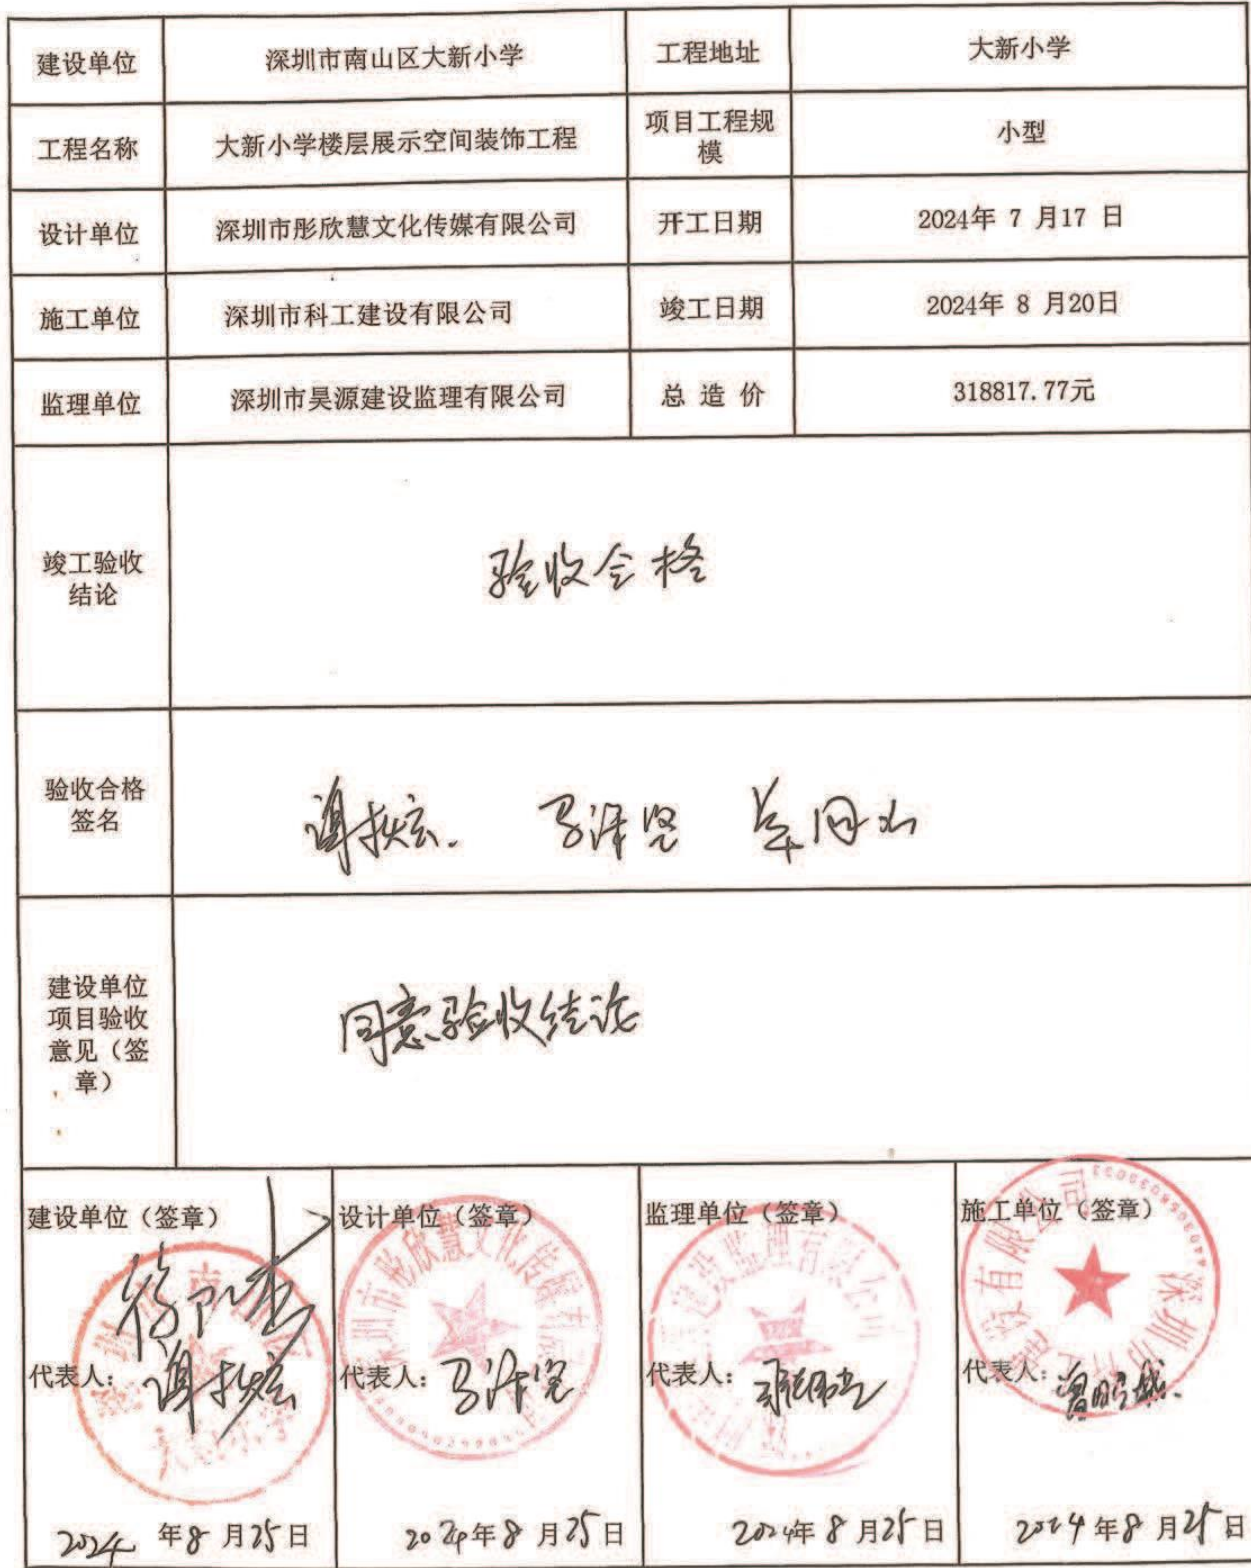 建设单位 深圳市南山区大新小学 工程地址 大新小学
工程名称 大新小学楼层展示空间装饰工程 项目工程规
模 小型
设计单位 深圳市彤欣慧文化传媒有限公司 开工日期 2024年 7 月17 日
施工单位 深圳市科工建设有限公司 竣工日期 2024年 8 月20日
监理单位 深圳市昊源建设监理有限公司 总 造 价 318817.77元
竣工验收
结论
验收合格
验收合格
签名
建设单位
项目验收
意见（签
章）
同意验收结论
建设单位（签章） 设计单位（签章） 监理单位（签章） 施工单位（签章）
代表人： 代表人： 代表人： 代表人：
2024 年8 月25日 2024年8 月25日 2024年 8 月25日 2024 年8 月25日